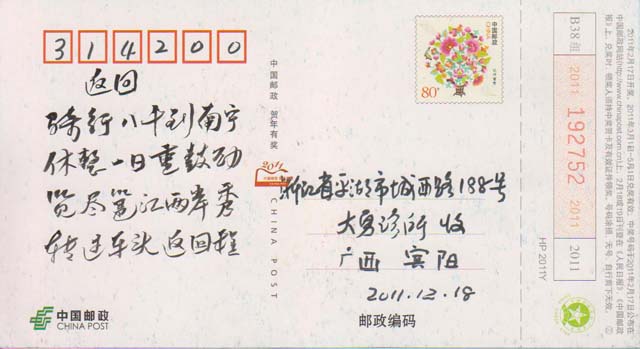 314200
返回
骑行八千到南宁
休整一日重鼓劲
览尽邕江两岸秀
转过车头返回程
中国邮政
CHINA POST
中国邮政 贺年有奖
2011
CHINA POST
中国邮政
80分
浙江省平湖市城西路188号
大勇诊所 收
广西 宾阳
2011.12.18
邮政编码
HP 2011Y
B38组
2011
192752
2011
2011